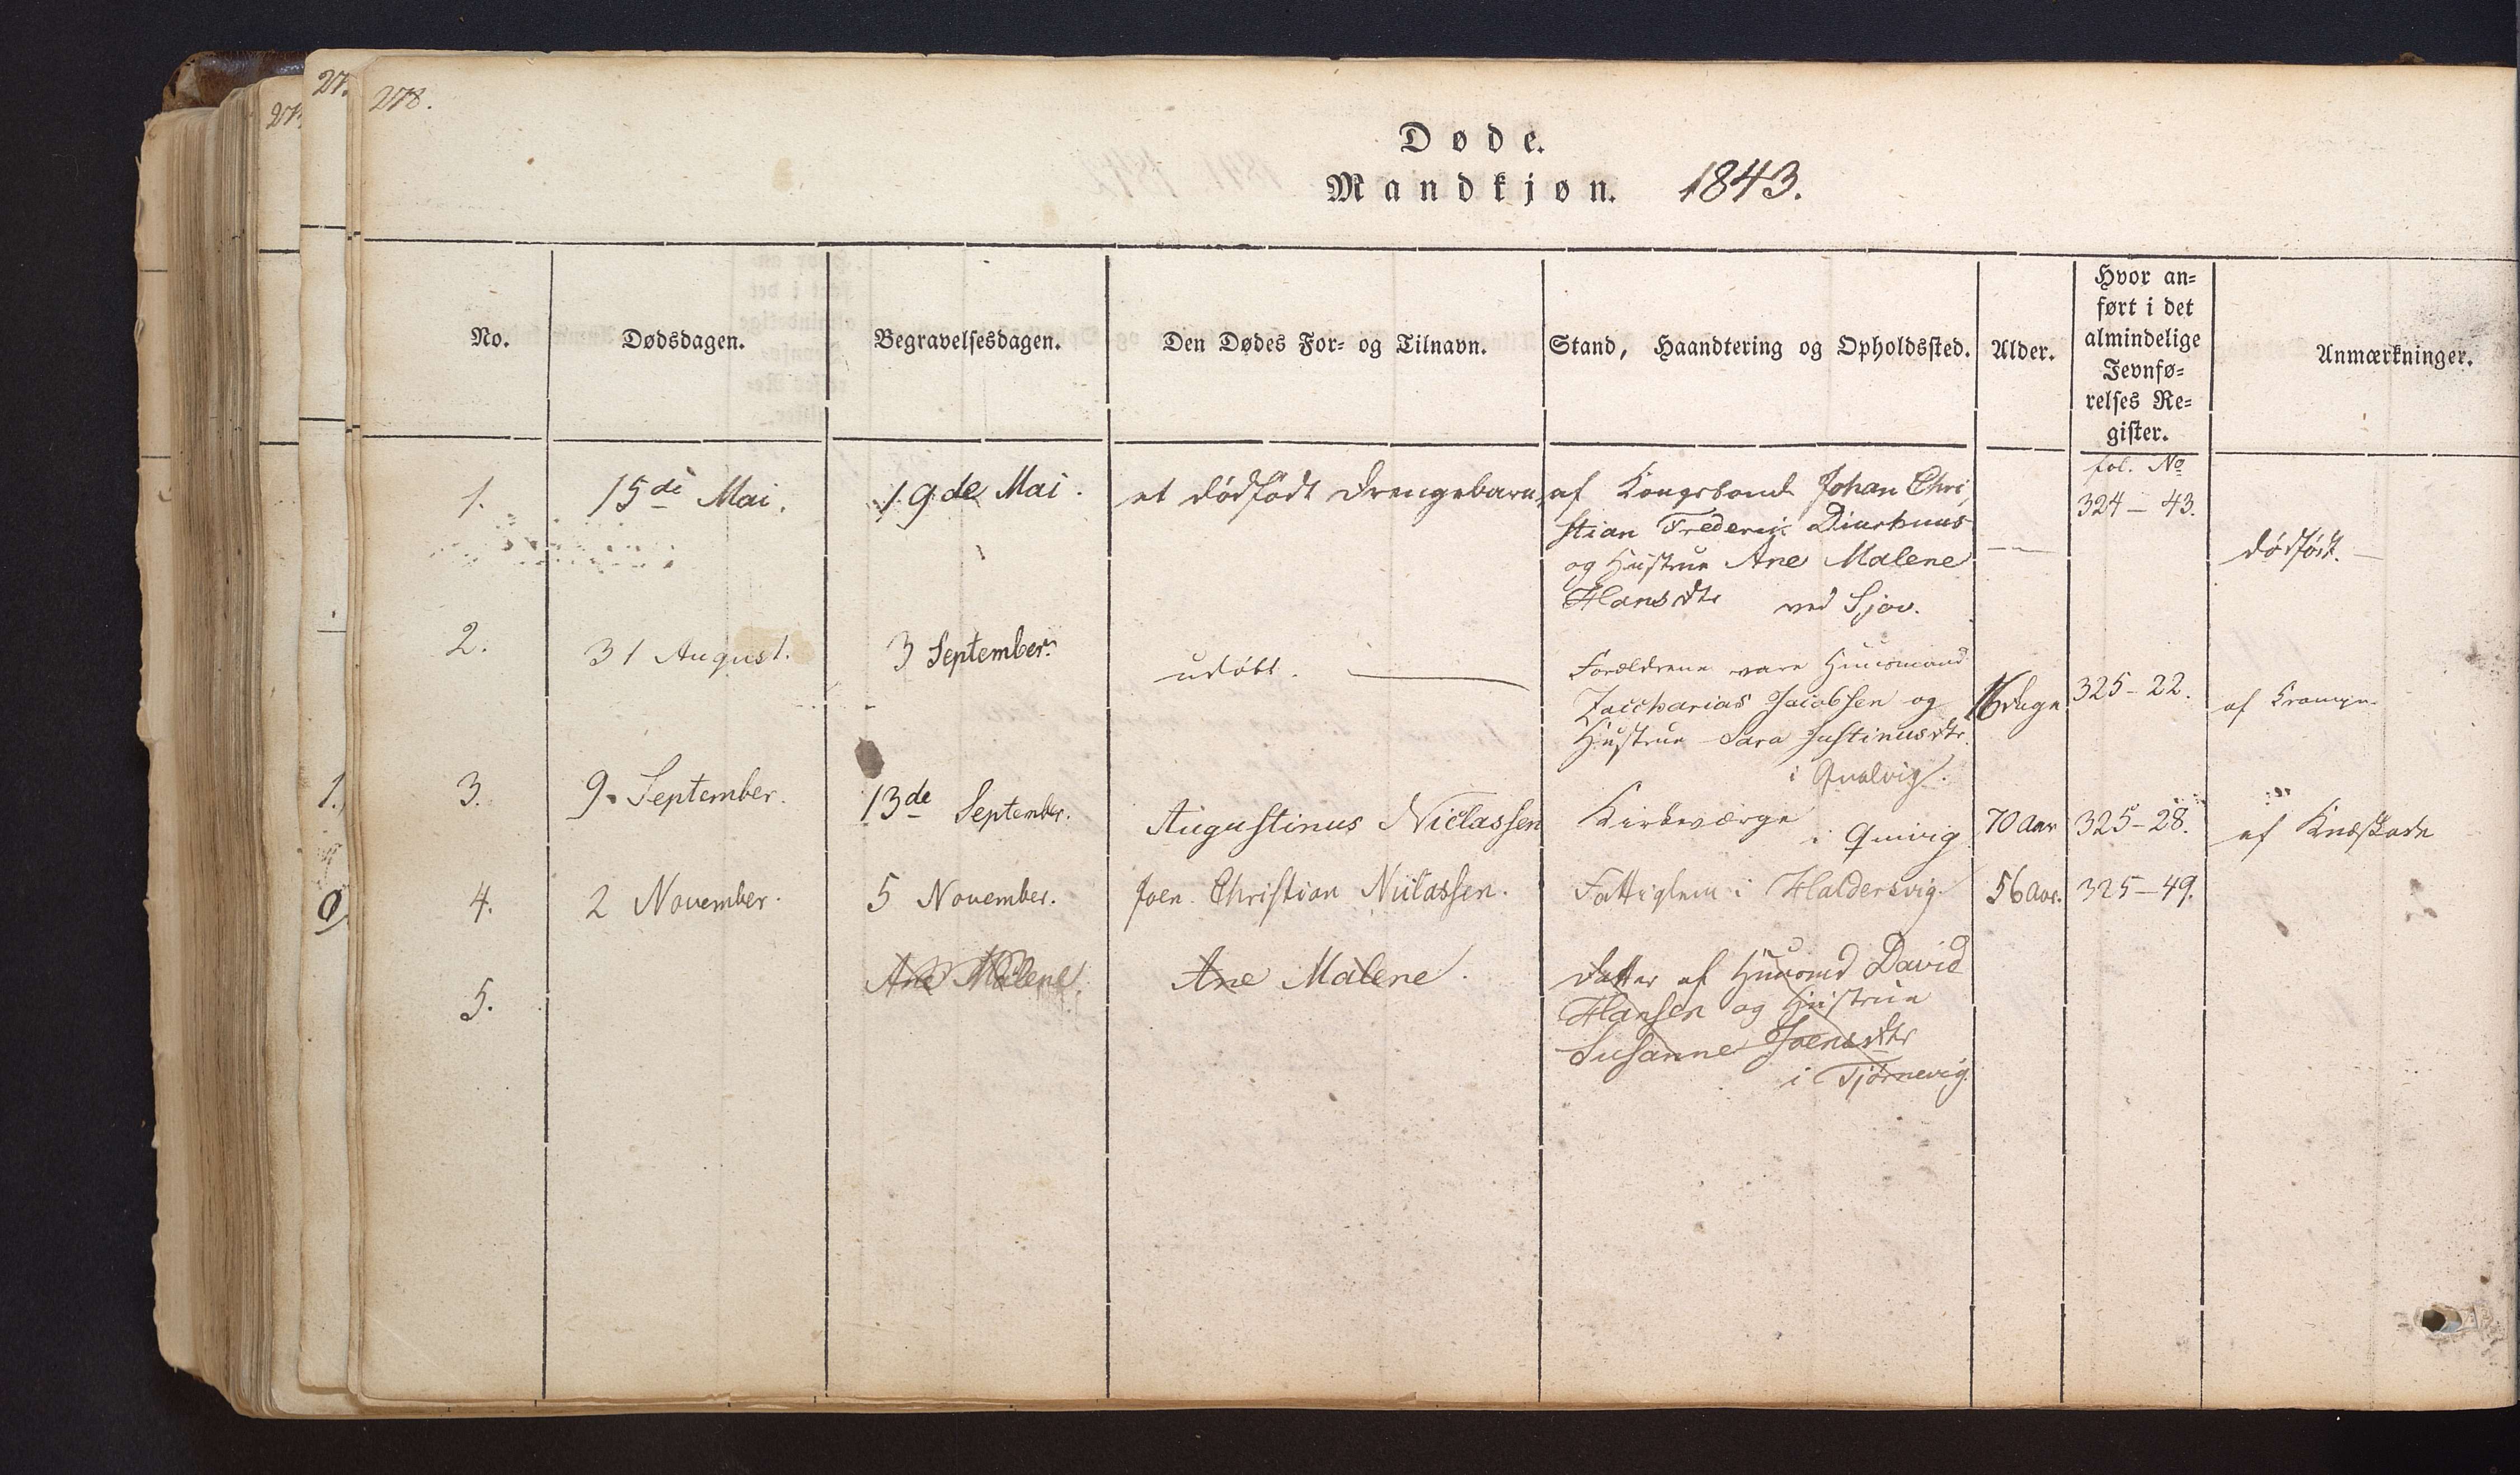 278.
Døde.
Mandkjøn. 1843.
No. Dødsdagen. Begravelsesdagen. Den Dødes For- og Tilnavn. Stand, Haandtering og Opholdssted. Alder. Hvor an=
ført i det
almindelige
Jevnfø=
relses Re=
gister. Anmærkninger.
fol. No
1. 15de Mai. 19de Mai. et dødfødt Drengebarn, af Kongsbonde Johan Chri 324 - 43.
stian Frederik Diurhuus
og Hustrue Ane Malene — dødfødt.
Hansdtr ved Sjov.
2. 31 August. 3 September. udøbt. Forældrene vare Huusmand
Zaccharias Jacobsen og 16 Dage 325 - 22. af Krampe
Hustrue Sara Justinusdtr
i Qualvig.
3. 9. September. 13de September. Augustinus Niclassen Kirkeværge 70 Aar 325 - 28. af
i Qvivig
4. 2 November. 5 November. Joen Christian Niclassen. Fattiglem i Haldersvig. 56 Aar. 325 - 49.
5. Ane Malene. Ane Malene. Datter af Huusmd David
Hansen og Hustrue
Susanne Joensdtr
i Tjørnevig.